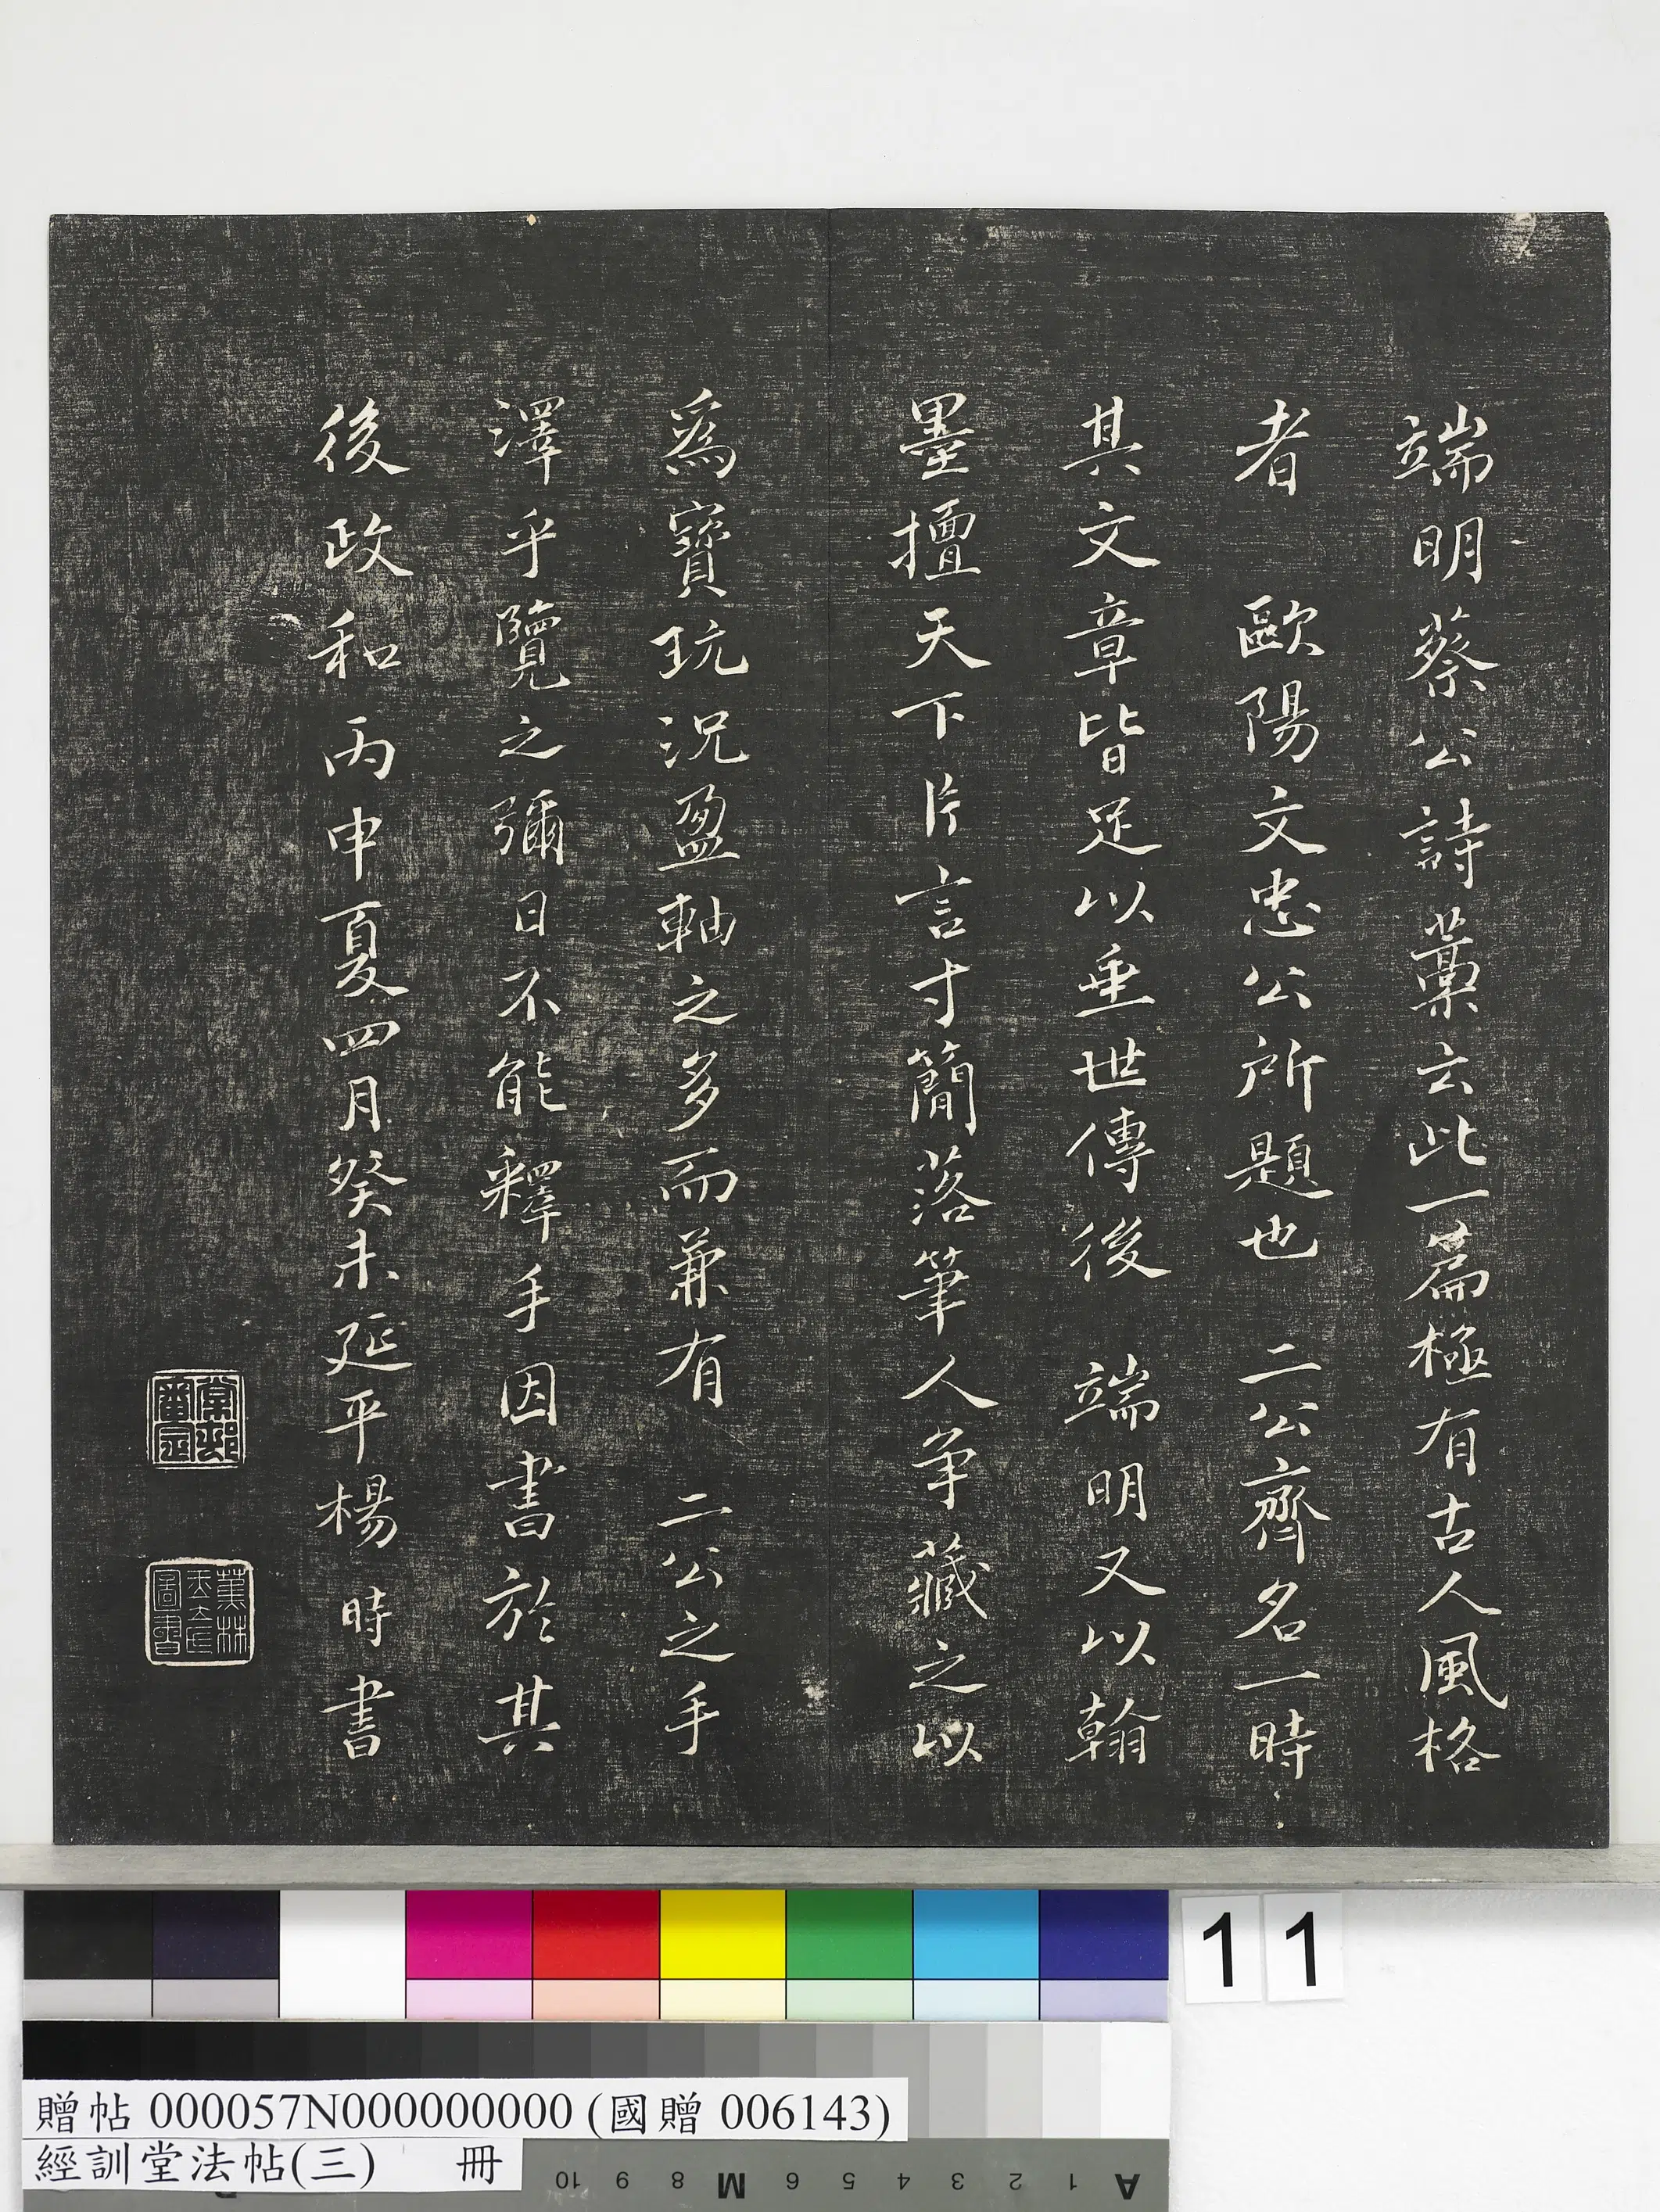 端明蔡公詩藁云此一篇極有古人風格
者　歐陽文忠公所題也　二公齊名一時
其文章皆足以垂世傳後　端明又以翰
墨擅天下片言寸簡落筆人争藏之以
爲寶玩況盈軸之多而兼有　二公之手
澤乎覽之彌日不能釋手因書於其
後政和丙申夏四月癸未延平楊　時書
棠邨審定
蕉林玉立氏圖書
11
贈帖 000057N000000000 (國贈 006143)
經訓堂法帖(三)　冊
10 9 8 M 6 5 4 3 2 1 A